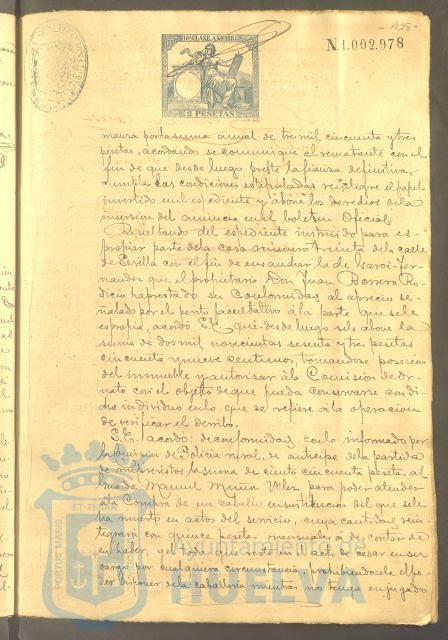 -428-
N.1.002.978
10ª CLASE. AÑO
2 PESETAS
maura por la suma anual de tres mil cincuenta y tres
pesetas, acordando se comunique al rematante con el
fin de que desde luego preste la fianza definitiva,
cumpla las condiciones estipuladas reintegre el papel
invertido en el espediente y abone los derechos de la
insersion del anuncio en el boletin Oficial.
Resultando del espediente instruido para es-
propiar parte de la casa número treinta de la calle
de Sevilla con el fin de ensanchar la de Garci-Fer-
nandez que el propietario Don Juan Borrero Ro-
dicio ha prestado su conformidad al aprecio se-
ñalado por el perito facultativo á la parte que se le
espropia, acordó S.E. que desde luego se le abone la
suma de dos mil novecientas sesenta y tres pesetas
cincuenta y nueve centimos, tomandose posesion
del inmueble y autorizar á la Comision de Or-
nato con el objeto de que pueda conservarse con di-
cho individuo en lo que se refiere á la operacion
de verificar el derribo.
S.E. acordó: de conformidad con lo informado por
la Comision de Policía rural, se anticipe de la partida
de imprevistos la suma de ciento cincuenta pesetas, al
Guarda Manuel Muñiz Velez para poder atender
á la Compra de un caballo en sustitucion del que se le
ha muerto en actos del servicio, cuya cantidad rein-
tegrará con quince pesetas mensuales á descontar de
su haber, y el todo de una vez en el acto de cesar en su
cargo por cualquiera circunstancia, prohibiendosele el po-
der disponer de la caballería mientras no tenga enjugado
PORTUS MARIS
ET TERRÆ
Ayuntamiento de
HUELVA